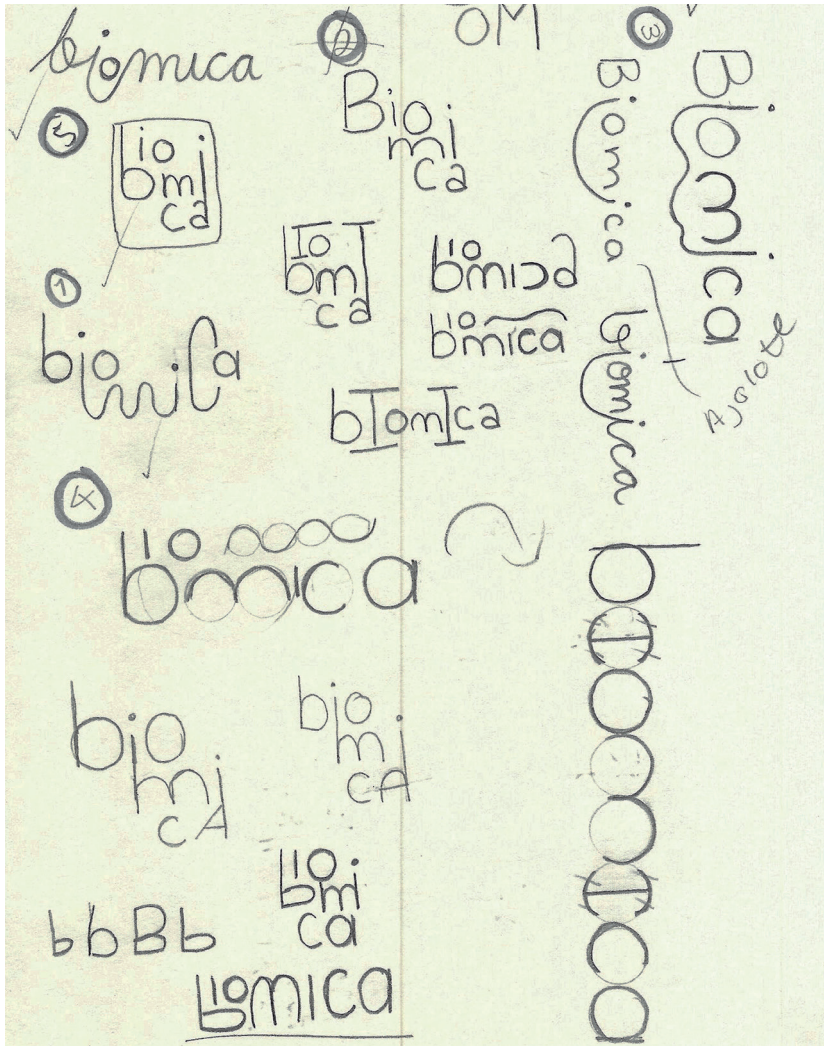 biomica
2
OM
3
5
bio
mi
ca
Bio
mi
ca
Biomica
Biomica
1
bIo
mI
ca
biomica
biomica
biomica
biomica
bIomIca
biomica
Ajolote
4
biomica
bIomIca
bio
mi
cA
bio
mi
cA
bio
mi
ca
b b B b
biomica